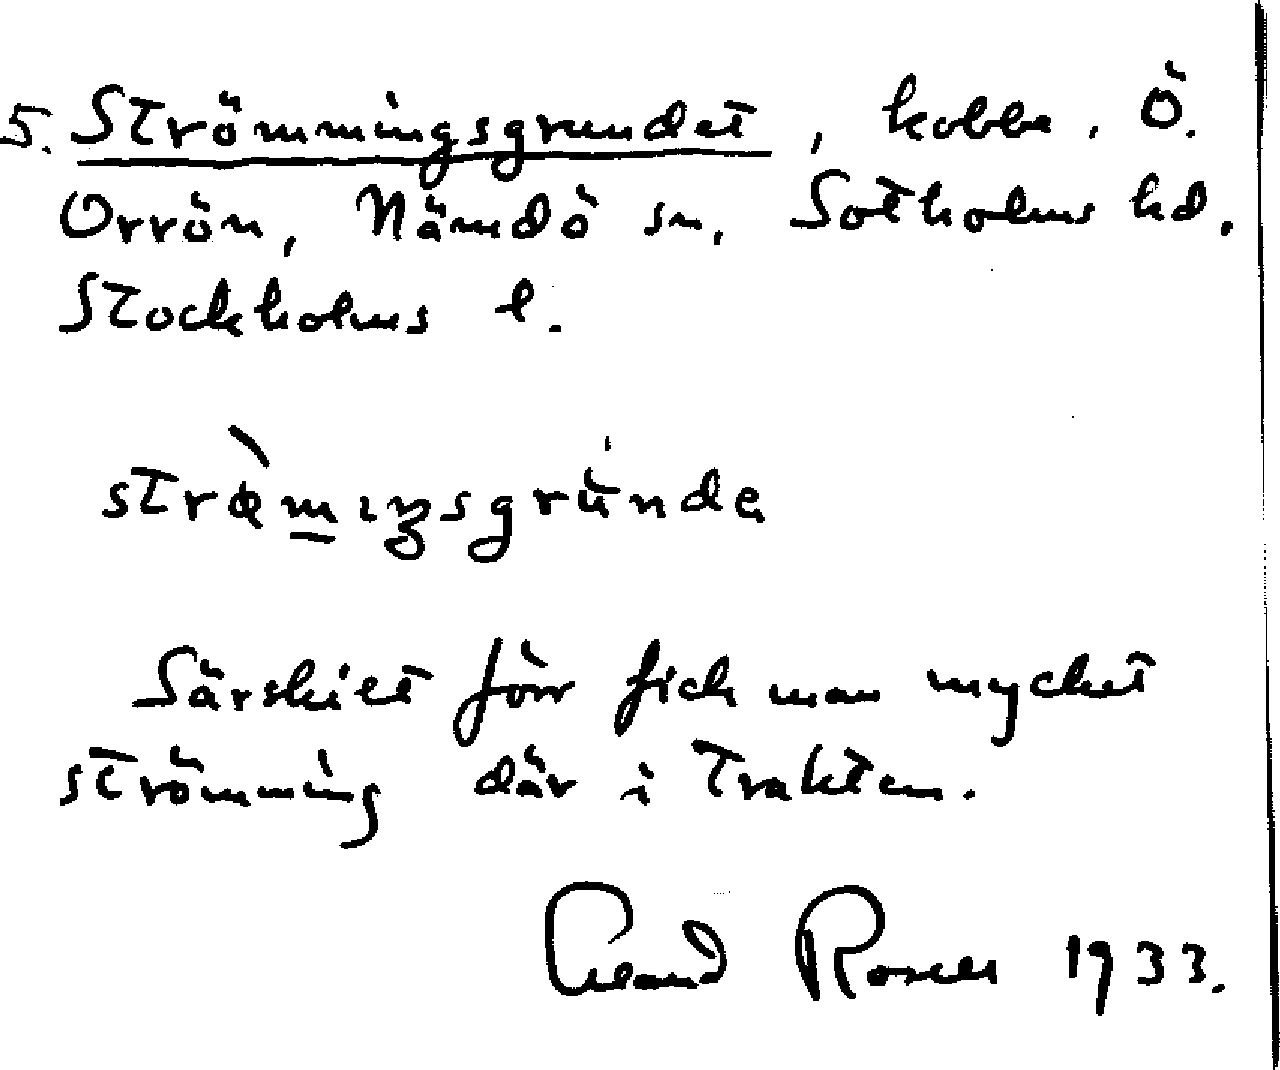 5. Strömmingsgrundet, kobbe, Ö.
Orrön, Nämdö sn, Sotholms hd,
Stockholms l.
strø̀mıŋsgrùndə
Särskilt förr fick man mycket
strömming där i trakten.
1933.